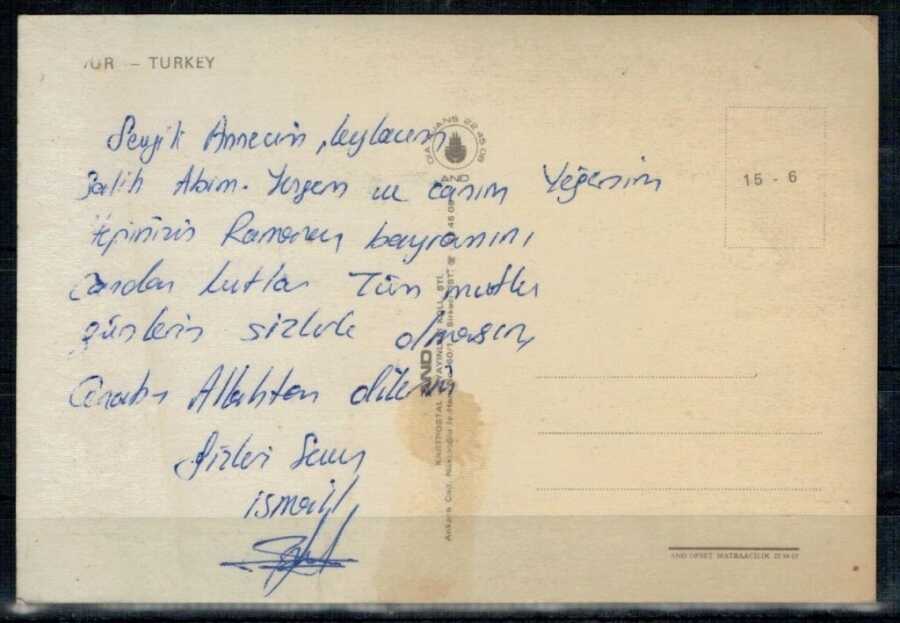 UR – TURKEY
Sevgili Annecim, leylacım
Salih Abim. Yengem ve canım Yeğenim
Hepinizin Ramazan bayramını
Candan kutlar Tüm mutlu
günlerin sizlerle olmasını
Cenabı Allahtan dilerim
Sizleri Seven
ismail
15 - 6
AJANS 22 45 09
AND
AND
KARTPOSTAL YAYINLARI KOLL. ŞTİ.
Ankara Cad.
AND OFSET MATBAACILIK